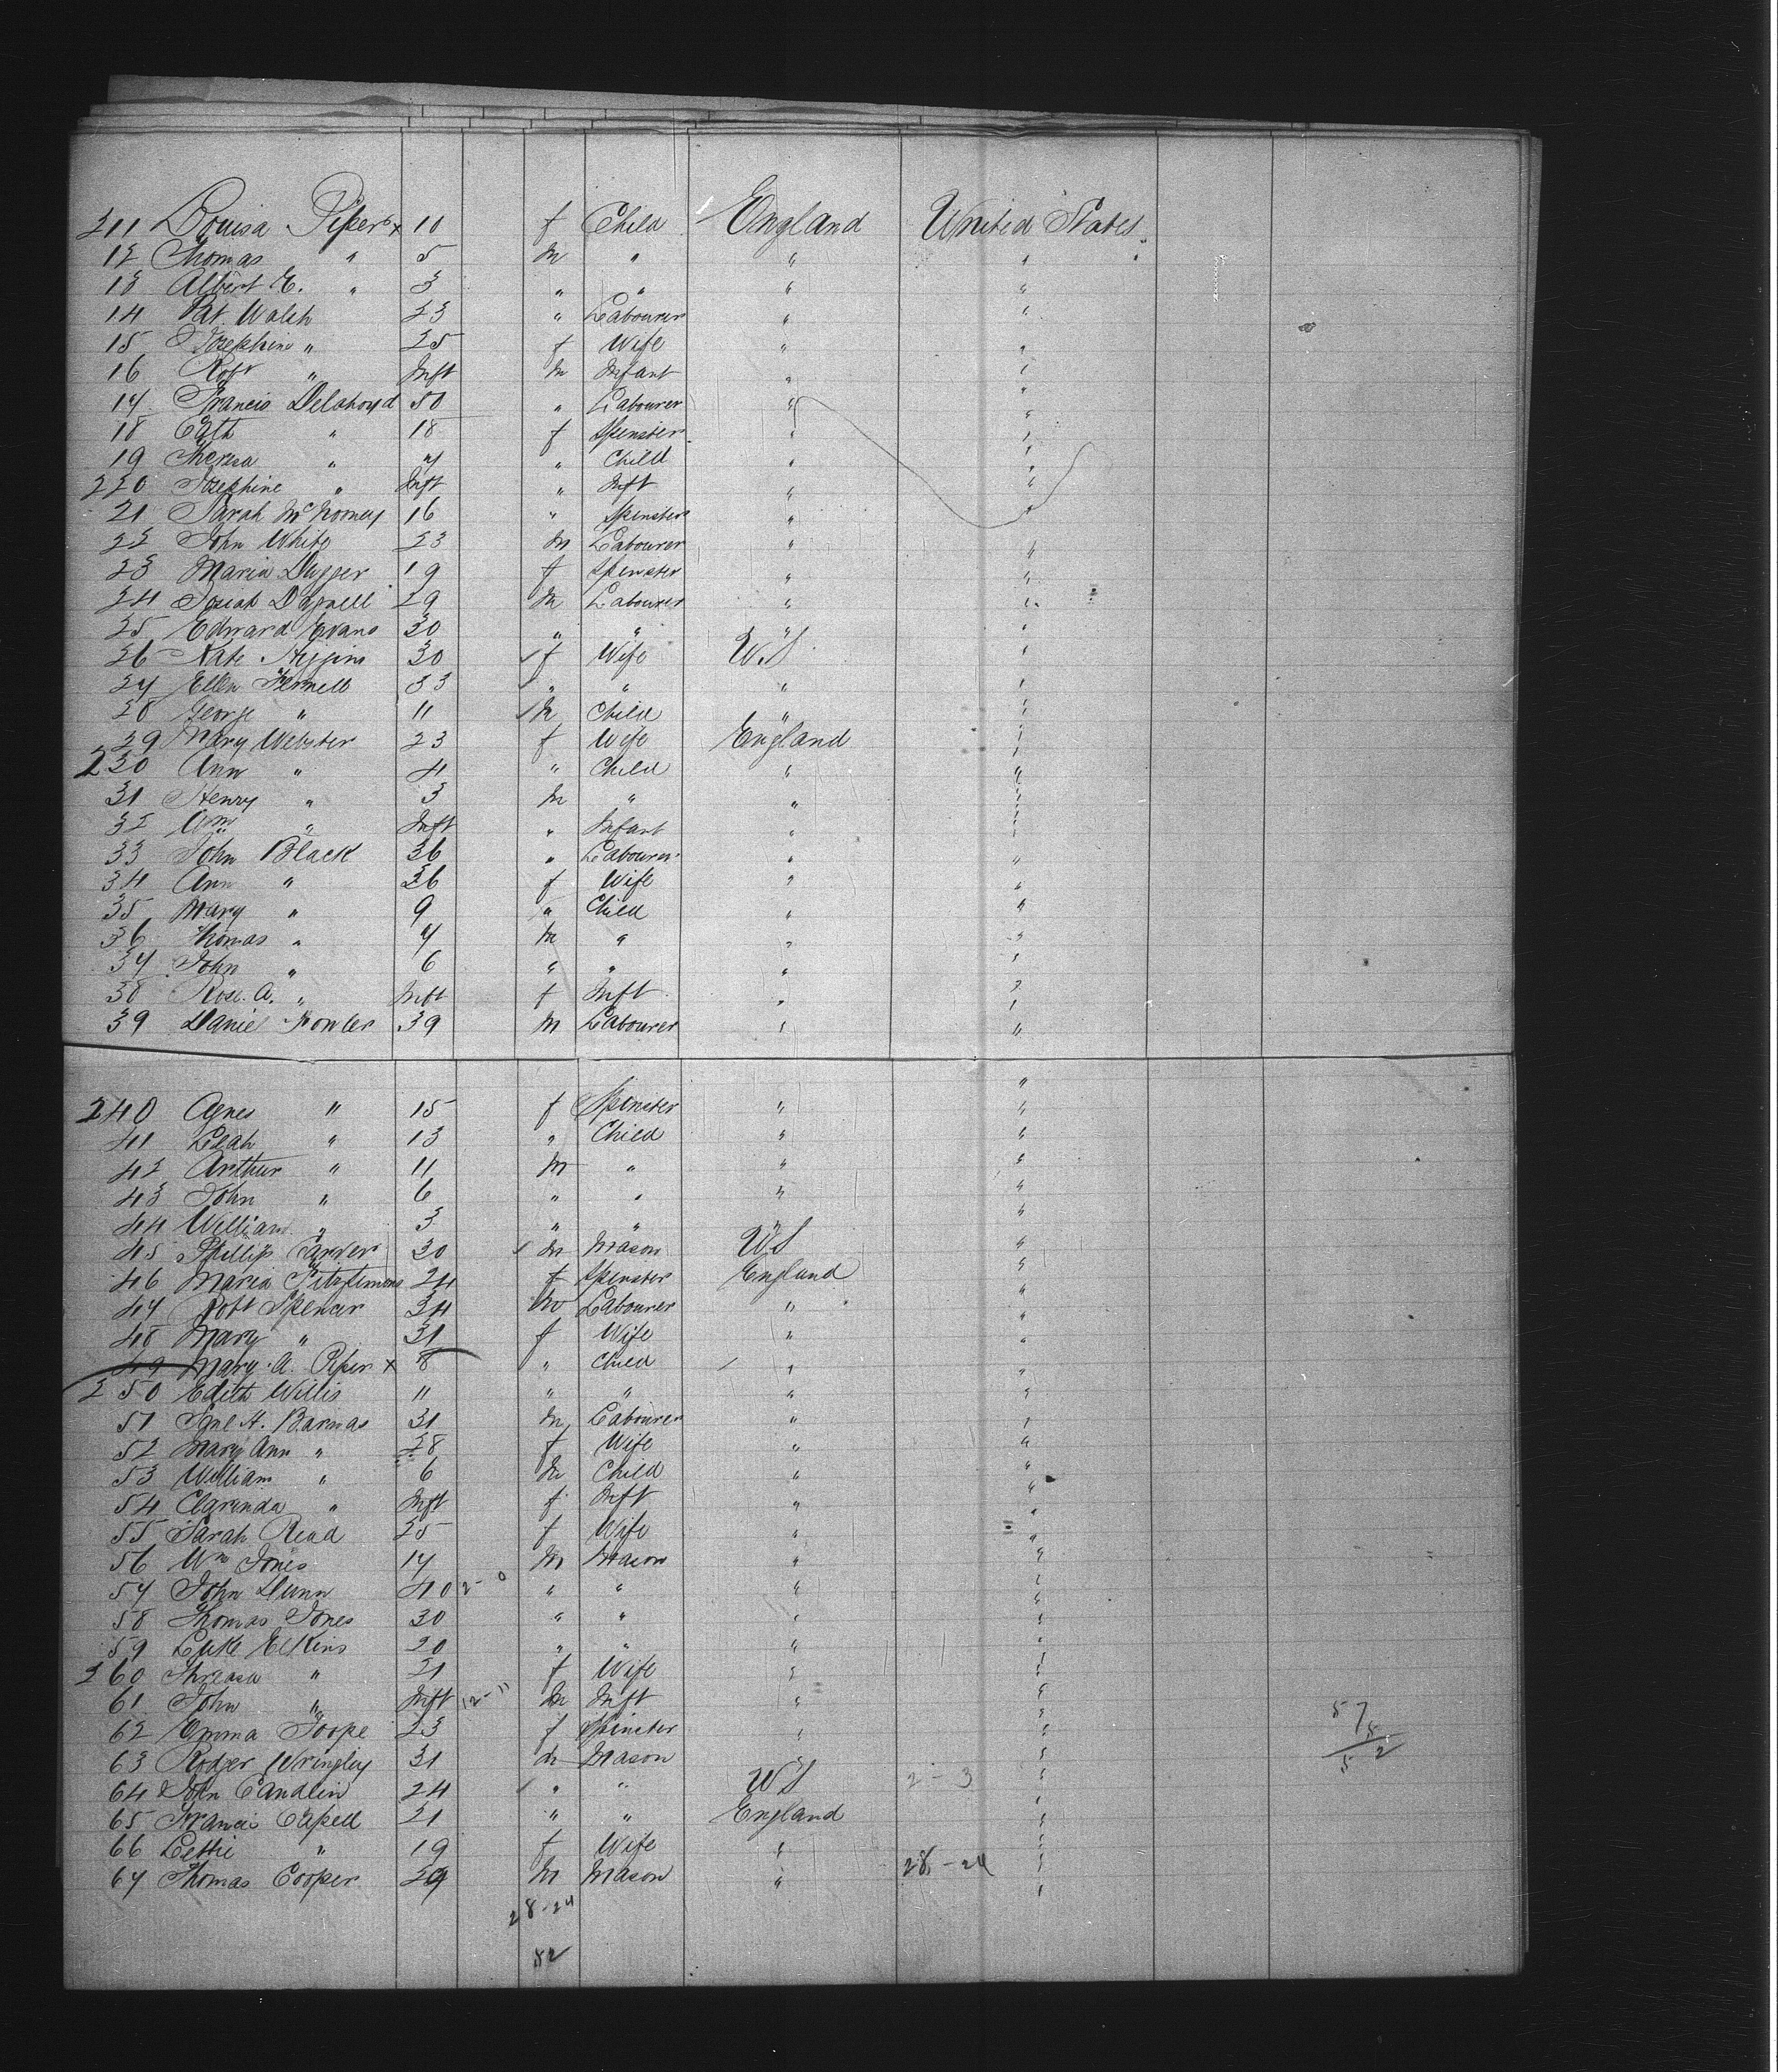 211 Louisa Piper x 10 f Child England United States
12 Thomas " 5 m " " "
13 Albert E. " 3 " " " "
14 Pat Walsh 23 " Labourer " "
15 Josephine " 25 f Wife " "
16 Robt " Inft m Infant " "
17 Francis Delahoyd 50 " Labourer " "
18 Cath " 18 f Spinster " "
19 Theresa " 7 " Child " "
220 Josephine " Inft " Inft " "
21 Sarah 16 " Spinster " "
22 John White 23 m Labourer " "
23 Maria 19 f Spinster " "
24 Josiah Dagnell 29 m Labourer " "
25 Edward Evans 30 " " " "
26 Kate Higgins 30 f Wife U.S "
27 Ellen 33 " " " "
28 George " 11 m Child " "
29 Mary Webster 23 f Wife England "
230 Ann " 4 " Child " "
31 Henry " 3 m " " "
32 Wm " Inft " Infant " "
33 John Black 36 " Labourer " "
34 Ann " 36 f Wife " "
35 Mary " 9 " Child " "
36 Thomas " 7 m " " "
37 John " 6 " " " "
38 Rose. A. " Inft f Inft " "
39 Daniel Fowler 39 m Labourer " "
240 Agnes " 15 f Spinster " "
41 Leah " 13 " Child " "
42 Arthur " 11 m " " "
43 John " 6 " " " "
44 William " 3 " " " "
45 Phillip Carver 30 m Mason US "
46 Maria Fitzsimons 24 f Spinster England "
47 Robt Spencer 34 m Labourer " "
48 Mary " 31 f Wife " "
49 Mary. A. Piper x 8 " Child " "
250 Edith Willis 11 " " " "
51 Saml H. Barnas 31 m Labourer " "
52 Mary Ann " 28 f Wife " "
53 William " 6 m Child " "
54 Clarinda " Inft f Inft " "
55 Sarah Read 25 f Wife " "
56 Wm Jones 17 m Mason " "
57 John Dunn 40 2-0 " " " "
58 Thomas Jones 30 " " " "
59 Luke Elkins 20 " " " "
260 Threasa " 21 f Wife " "
61 John " Inft 12-11 m Inft " "
62 Emma Toope 23 f Spinster " "
63 Rodger Wringley 31 m Mason " "
64 John Candlin 24 " " US 2-3 "
65 Francis Capell 21 " " England "
66 Lettie " 19 f Wife " "
67 Thomas Cooper 29 m Mason " 28-24 "
28-24
82
57
5
52